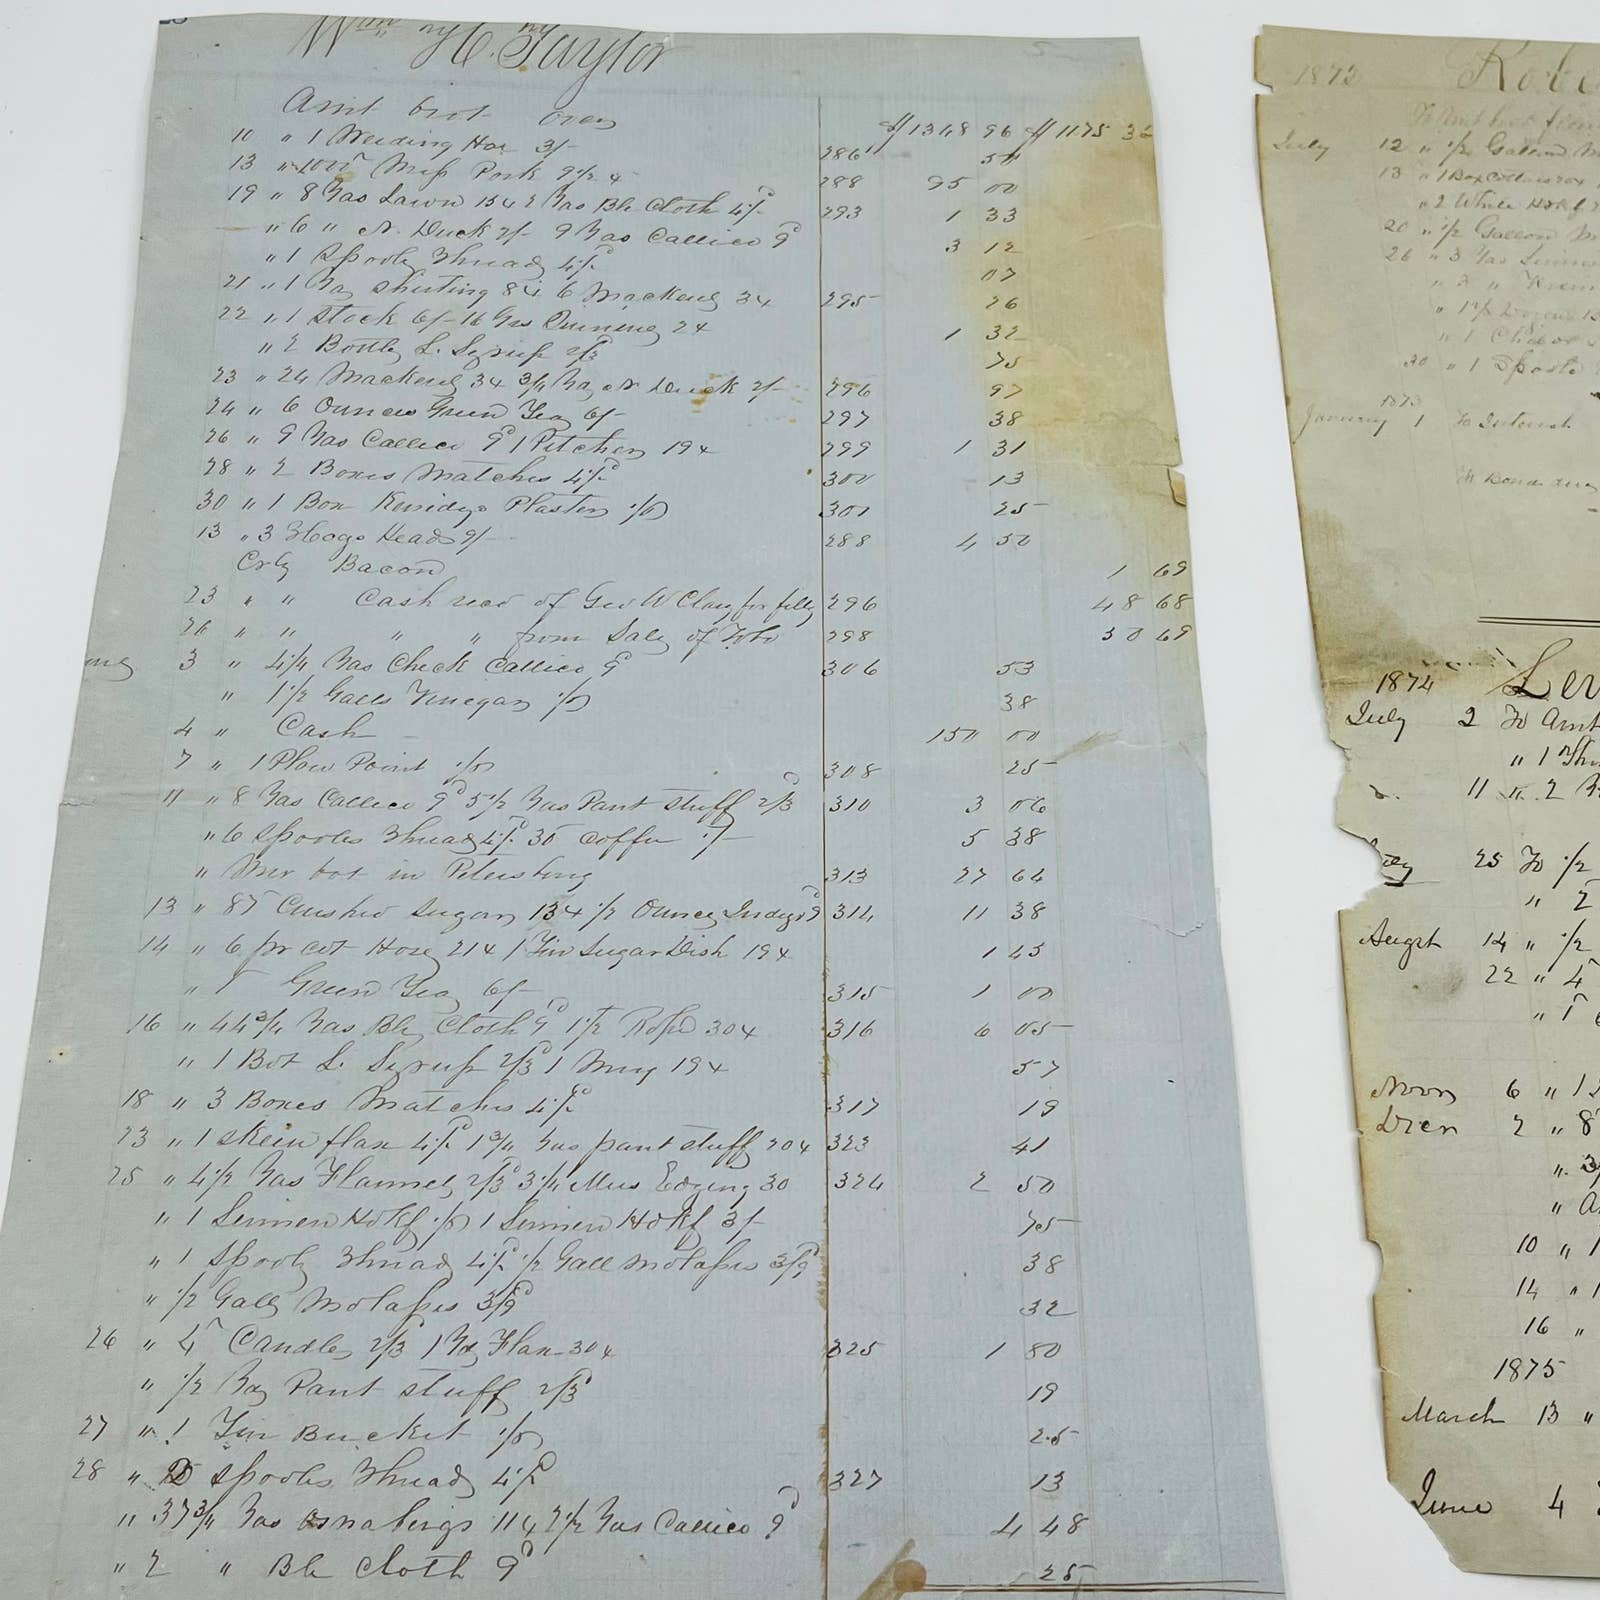 Wm H. Taylor
Amt brot over $1348 96 $1175 36
10 " 1 Weeding Hoe 3/- 286 50
13 " 1000 Mess Pork 9½ 288 95 00
19 " 8 Yds Lawn 15¢ 2 Yds Ble Cloth 4½d 293 1 33
" 6 " N. Duck 2/- 9 Yds Callico 9d 3 12
" 1 Spool Thread 4½d 07
21 " 1 Yd shirting 8¢ 6 Mackerel 3¢ 295 26
22 " 1 Stock 6/- 16 Grs Quinine 2¢ 1 32
" 2 Bottles L. Syrup 2/3 75
23 " 24 Mackerel 3¢ ¾ Yd N Duck 2/- 296 97
24 " 6 Ounces Green Tea 6/- 297 38
26 " 9 Yds Callico 9d 1 Pitcher 19¢ 299 1 31
28 " 2 Boxes Matches 4½d 300 13
30 " 1 Box Plaster 1/6 301 25
13 " 3 Hogs Heads 9/- 288 4 50
Cr by Bacon 1 69
23 " " Cash recd of Geo W Clay for 296 48 68
26 " " " " from Sale of Tobo 298 30 69
3 " 4¼ Yds Check Callico 9d 306 53
" 1½ Galls Vinegar 1/6 38
4 " Cash 150 00
7 " 1 Plow Point 1/6 308 25
11 " 8 Yds Callico 9d 5½ Yds Pant stuff 2/3 310 3 06
" 6 Spools Thread 4½d 30 Coffee 1/- 5 38
" Mer bot in Petersburg 313 27 64
13 " 87 Crushed Sugar 13¢ ½ Ounce Indigo 9d 314 11 38
14 " 6 pr cot Hose 21¢ 1 Tin Sugar Dish 19¢ 1 45
" 1 Green Tea 6/- 315 1 00
16 " 44¾ Yds Ble Cloth 9d 1½ Rope 30¢ 316 6 05
" 1 Bot L. Syrup 2/3 1 Mug 19¢ 57
18 " 3 Boxes Matches 4½d 317 19
23 " 1 skein flax 4½d 1¾ Yds pant stuff 20¢ 323 41
25 " 4½ Yds Flannel 2/3 3¼ Mus Edging 30 324 2 50
" 1 Linnen Hdkf 1/6 1 Linnen Hdkf 3/- 75
" 1 Spool Thread 4½d ½ Gall Molasses 3/9 38
" ½ Galls Molasses 3/9 32
26 " 4 Candles 2/3 1 Yd Flax 30¢ 325 1 80
" ½ Yd Pant stuff 2/3 19
27 " 1 Tin Bucket 1/6 25
28 " 2 Spools Thread 4½d 327 13
" 37¾ Yds Osnabergs 11¢ 2½ Yds Callico 9d 4 48
" 2 " Ble Cloth 9d 25
1872 Robe
July 12 " ½ Gallon M
13 " 1 Box
" 2 White Hdkf
20 " ½ Gallon M
26 " 3 Yds Linnen
" 3 "
" 1½ Dozen
" 1
30 " 1 Spools
1873
January 1 To Interest
To Bond
1874 Lev
July 2 To Amt
" 1
11 " 2
July 25 To ½
" 2
Augst 14 " ½
22 " 4
" 1
Novr 6 " 12
Decr 2 " 8
" 3
"
10 " 1
14 " 1
16 "
1875
March 13 "
June 4